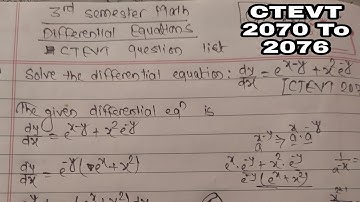 3rd semester Math
Differential Equations
CTEVT question list
CTEVT
2070 To
2076
Solve the differential equation: dy/dx = e^(x-y) + x² e^(-y)
[CTEVT 202
The given differential eqⁿ is
dy/dx = e^(x-y) + x² e^(-y)
dy/dx = e^(-y) (e^x + x²)
e^x . e^(-y) + x² . e^(-y)
e^(-y) (e^x + x²)